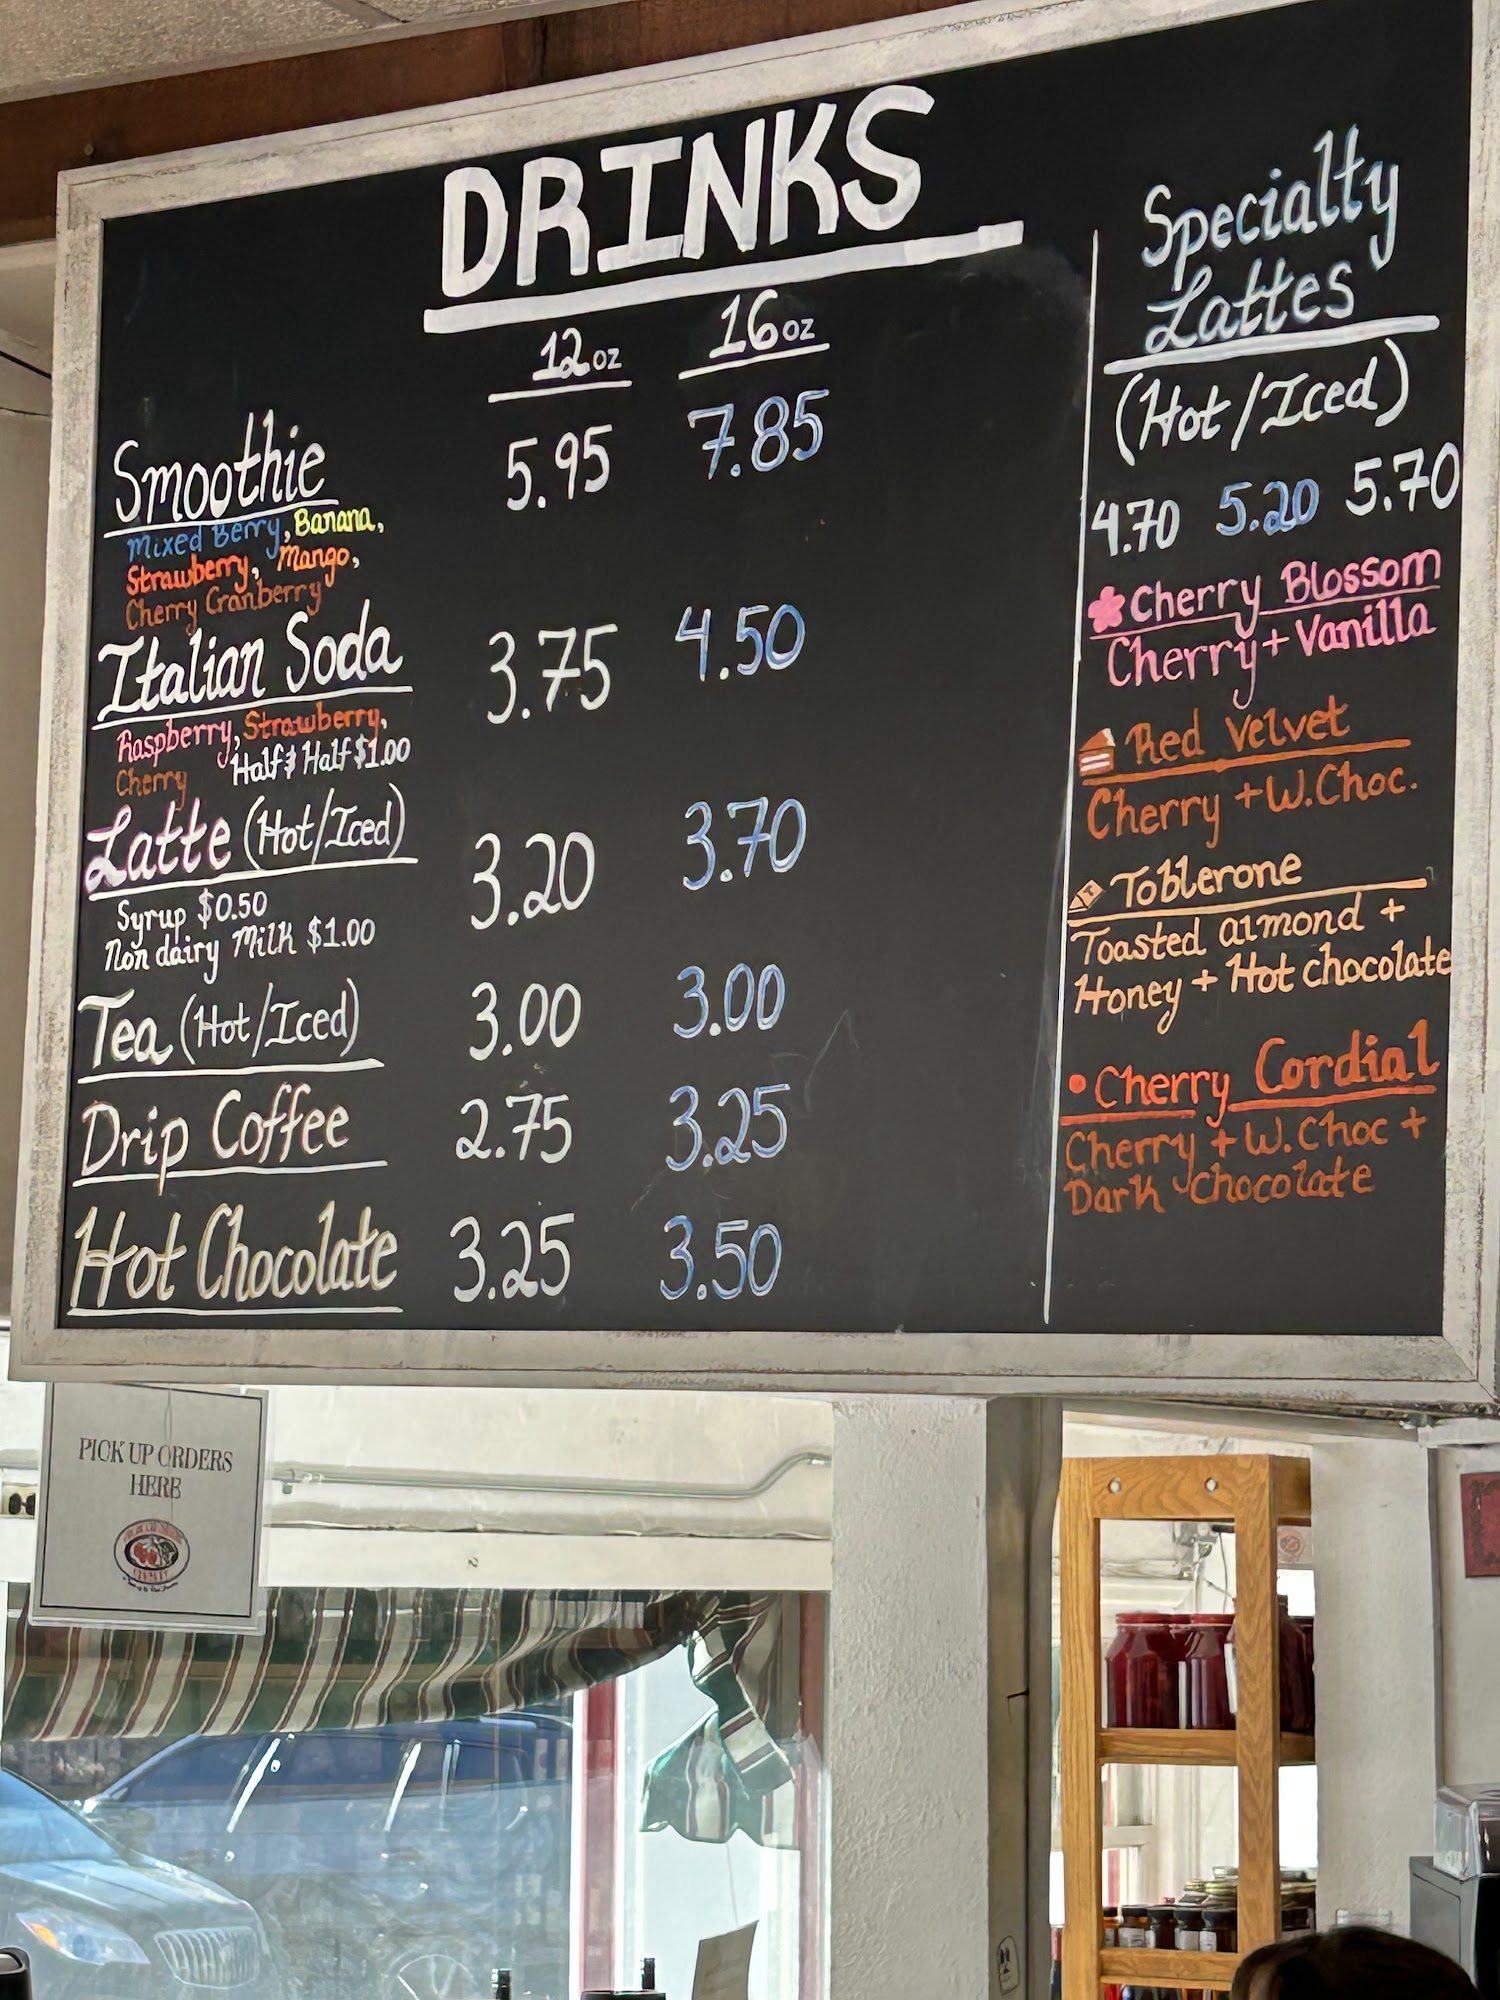 DRINKS
12oz 16oz
Smoothie 5.95 7.85
Mixed Berry, Banana,
Strawberry, Mango,
Cherry Cranberry
Italian Soda 3.75 4.50
Raspberry, Strawberry,
Cherry Half & Half $1.00
Latte (Hot/Iced) 3.20 3.70
Syrup $0.50
Non dairy Milk $1.00
Tea (Hot/Iced) 3.00 3.00
Drip Coffee 2.75 3.25
Hot Chocolate 3.25 3.50
Specialty
Lattes
(Hot/Iced)
4.70 5.20 5.70
Cherry Blossom
Cherry + Vanilla
Red Velvet
Cherry + W.Choc.
Toblerone
Toasted almond +
Honey + Hot chocolate
Cherry Cordial
Cherry + W.Choc +
Dark chocolate
PICK UP ORDERS
HERE